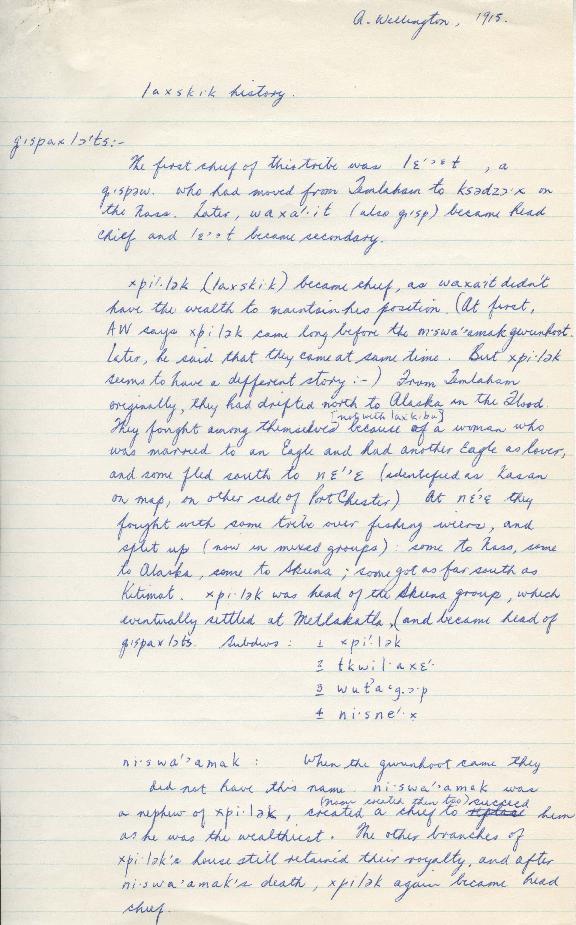 A. Wellington, 1915.
laxsk·i·k history.
g·ispaxlɔ'ts:-
The first chief of this tribe was lɛ'ɔɛt, a
g·ispəw. who had moved from Temlaham to ksədzɔ·x on
the Nass. Later, waxa'·it (also g·isp) became head
chief and lɛ'ɔɛt became secondary.
xpi'·lək (laxsk·i·k) became chief, as waxait didn't
have the wealth to maintain his position. (At first,
AW says xpi·lək came long before the ni·swa'ɔamak gwunhoot.
Later, he said that they came at same time. But xpi·lək
seems to have a different story :-) From Temlaham
originally, they had drifted north to Alaska in the Flood.
[not with laxk·ibu]
They fought among themselves because of a woman who
was married to an Eagle and had another Eagle as lover,
and some fled south to nɛ'ɔɛ (identified as Kasan
on map, on other side of Port Chester) At nɛ'ɛ they
fought with some tribe over fishing wiers, and
split up (now in mixed groups): some to Nass, some
to Alaska, some to Skeena; some got as far south as
Kitimat. xpi·lək was head of the Skeena group, which
eventually settled at Metlakatla, (and became head of
g·ispaxlɔts. Subdivs: 1 xpi'·lək
2 tkwil·axɛ'·
3 wut'aᶜg·ɔ·p
4 ni·sne'·x
ni·swa'ɔamak : When the gwunhoot came they
did not have this name. ni·swa'ɔamak was
(moon created then too) succeed
a nephew of xpi·lək, created a chief to replace him
as he was the wealthiest. The other branches of
xpi·lək's house still retained their royalty, and after
ni·swa'amak's death, xpilək again became head
chief.